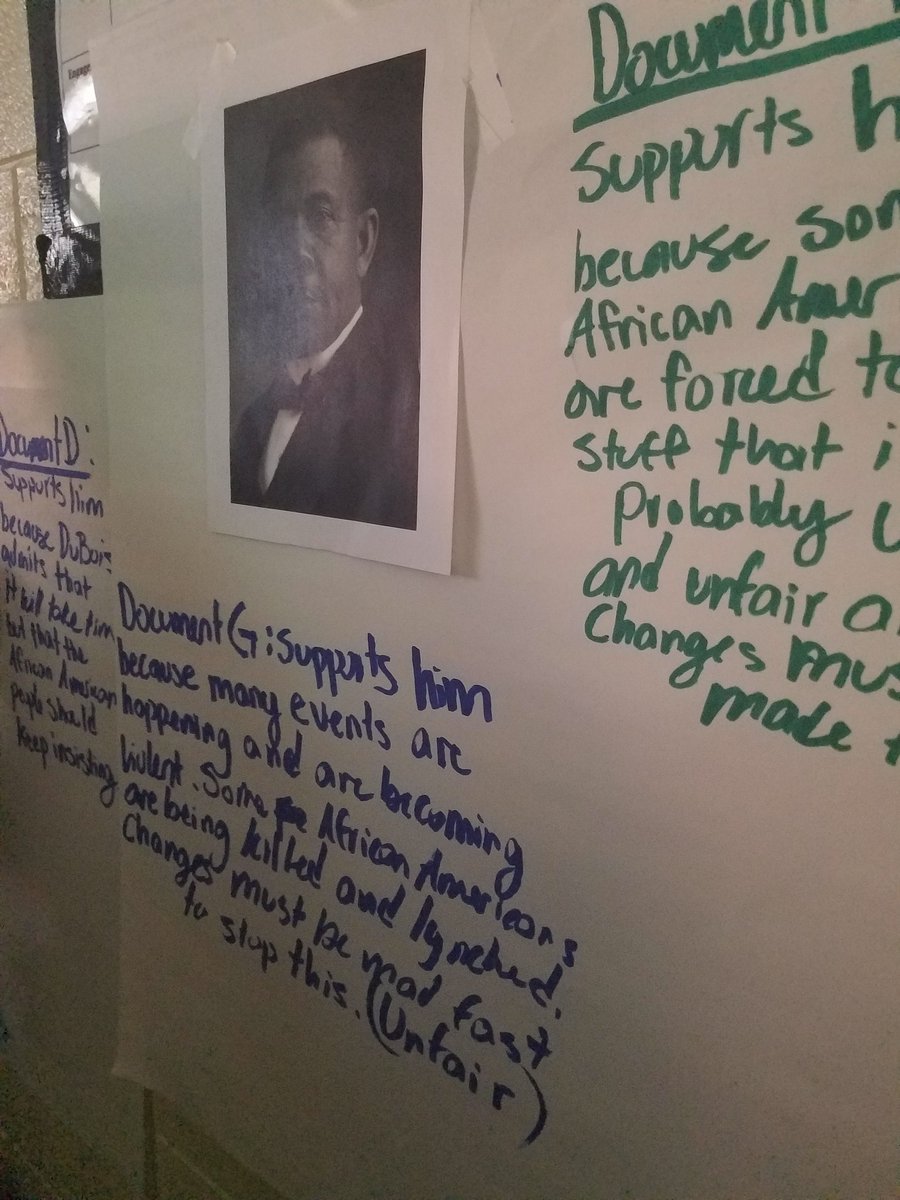 Engage
Document D:
supports him
because DuBois
admits that
it will take time
but that the
African American
people should
keep insisting
Document G: supports him
because many events are
happening and are becoming
violent. Some African Americans
are being killed and lynched.
Changes must be mad fast
to stop this. (Unfair)
Document
Supports h
because som
African Amer
are forced to
stuff that i
Probably u
and unfair a
Changes mus
made f